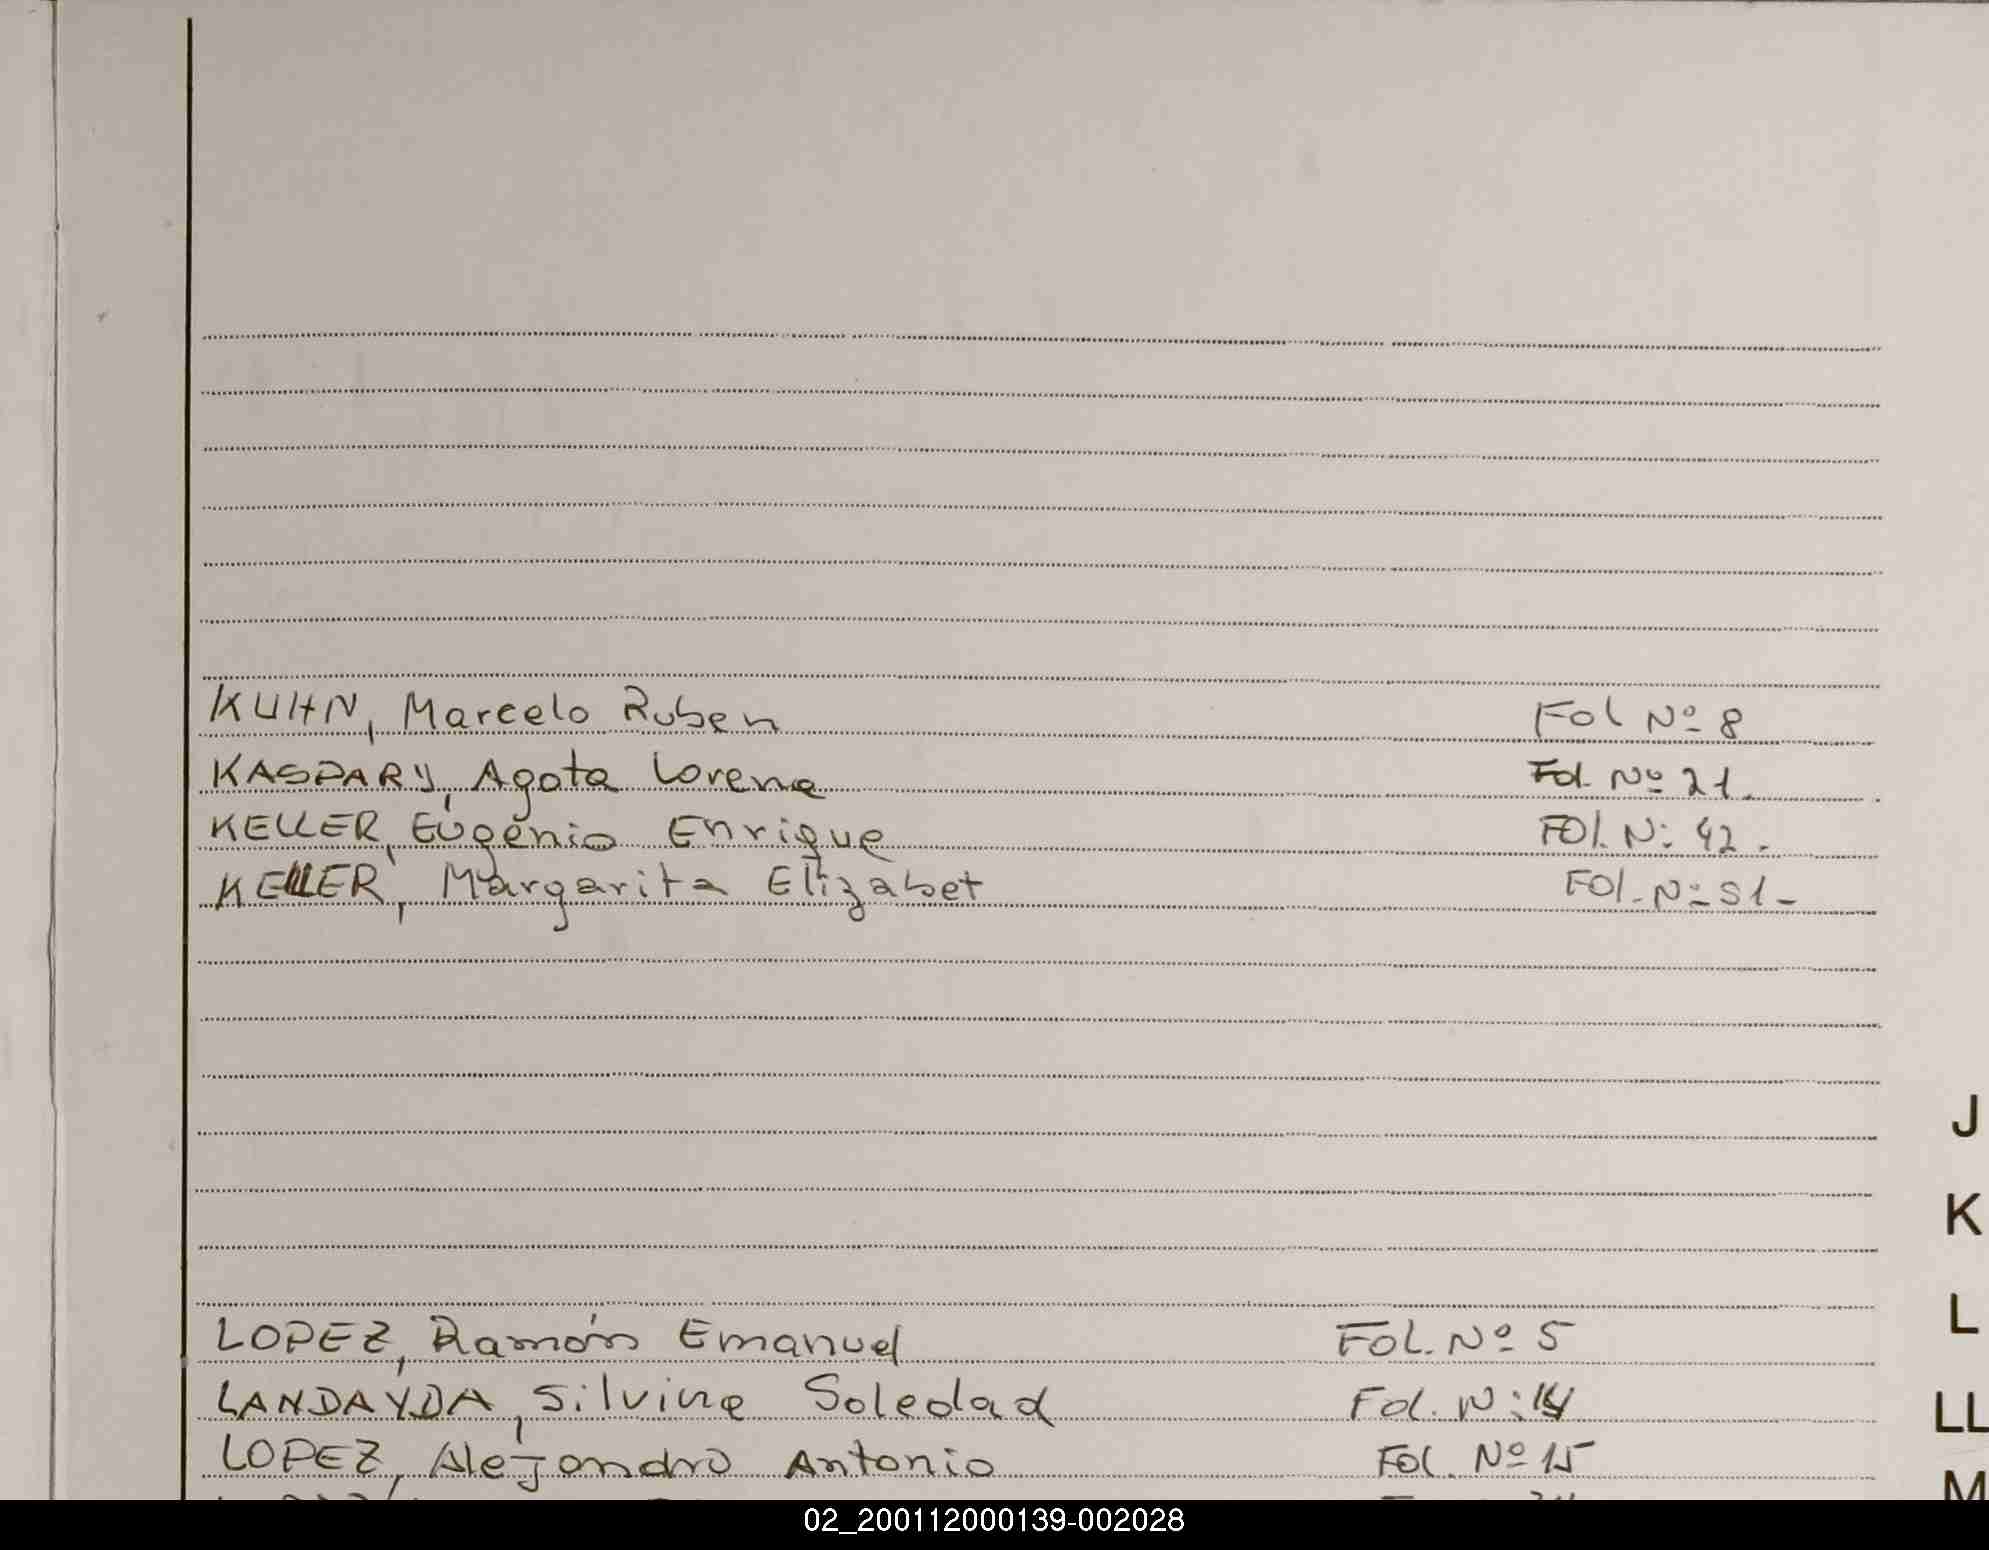 KUHN, Marcelo Ruben Fol Nº 8
KASPARY, Agata Lorena Fol. Nº 21.
KELLER, Eugenio Enrique FOl. N: 42.
KELLER, Margarita Elizabet FOl. Nº 51-
J
K
L
LOPEZ, Ramón Emanuel Fol. Nº 5
LANDAYDA, Silvina Soledad Fol. N: 14
LL
LOPEZ, Alejandro Antonio Fol. Nº 15
M
02_200112000139-002028